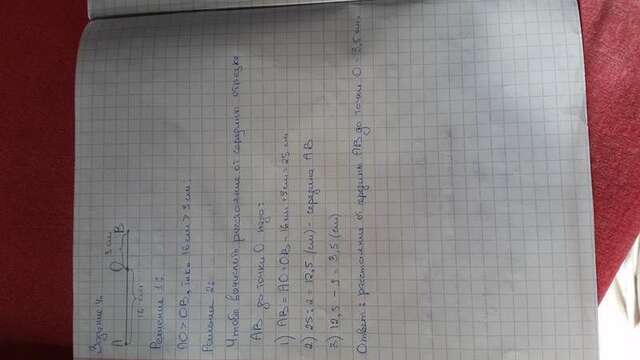 Задание 4.
9 см
A O B
16 см
Решение 1:
AO > OB, т.к. 16 см > 9 см.
Решение 2:
Чтобы вычислить расстояние от середины отрезка
AB до точки O надо:
1) AB = AO + OB = 16 см + 9 см = 25 см
2) 25 : 2 = 12,5 (см) - середина AB
3) 12,5 - 9 = 3,5 (см)
Ответ: расстояние от середины AB до точки O = 3,5 см.